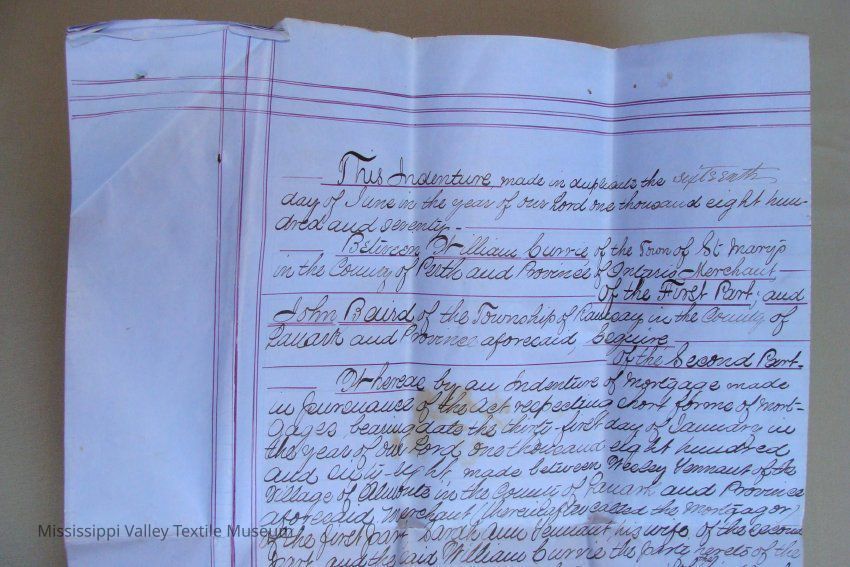 This Indenture, made in duplicate the sixteenth
day of June in the year of our Lord one thousand eight hun-
dred and seventy-
Between William Currie of the Town of St Mary's
in the County of Perth and Province of Ontario Merchant
of the First Part; and
John Baird of the Township of Ramsay in the County of
Lanark and Province aforesaid, Esquire
of the Second Part-
Whereas by an Indenture of Mortgage made
in pursuance of the act respecting short forms of Mort-
gages, bearing date the thirty-first day of January in
the year of our Lord, one thousand eight hundred
and sixty-eight, made between Wesley Tennant of the
Village of Almonte in the County of Lanark and Province
aforesaid Merchant (thereinafter called the Mortgagor)
of the first part Sarah Ann Tennant, his wife, of the second
part, and the said William Currie the party hereto of the
Mississippi Valley Textile Museum